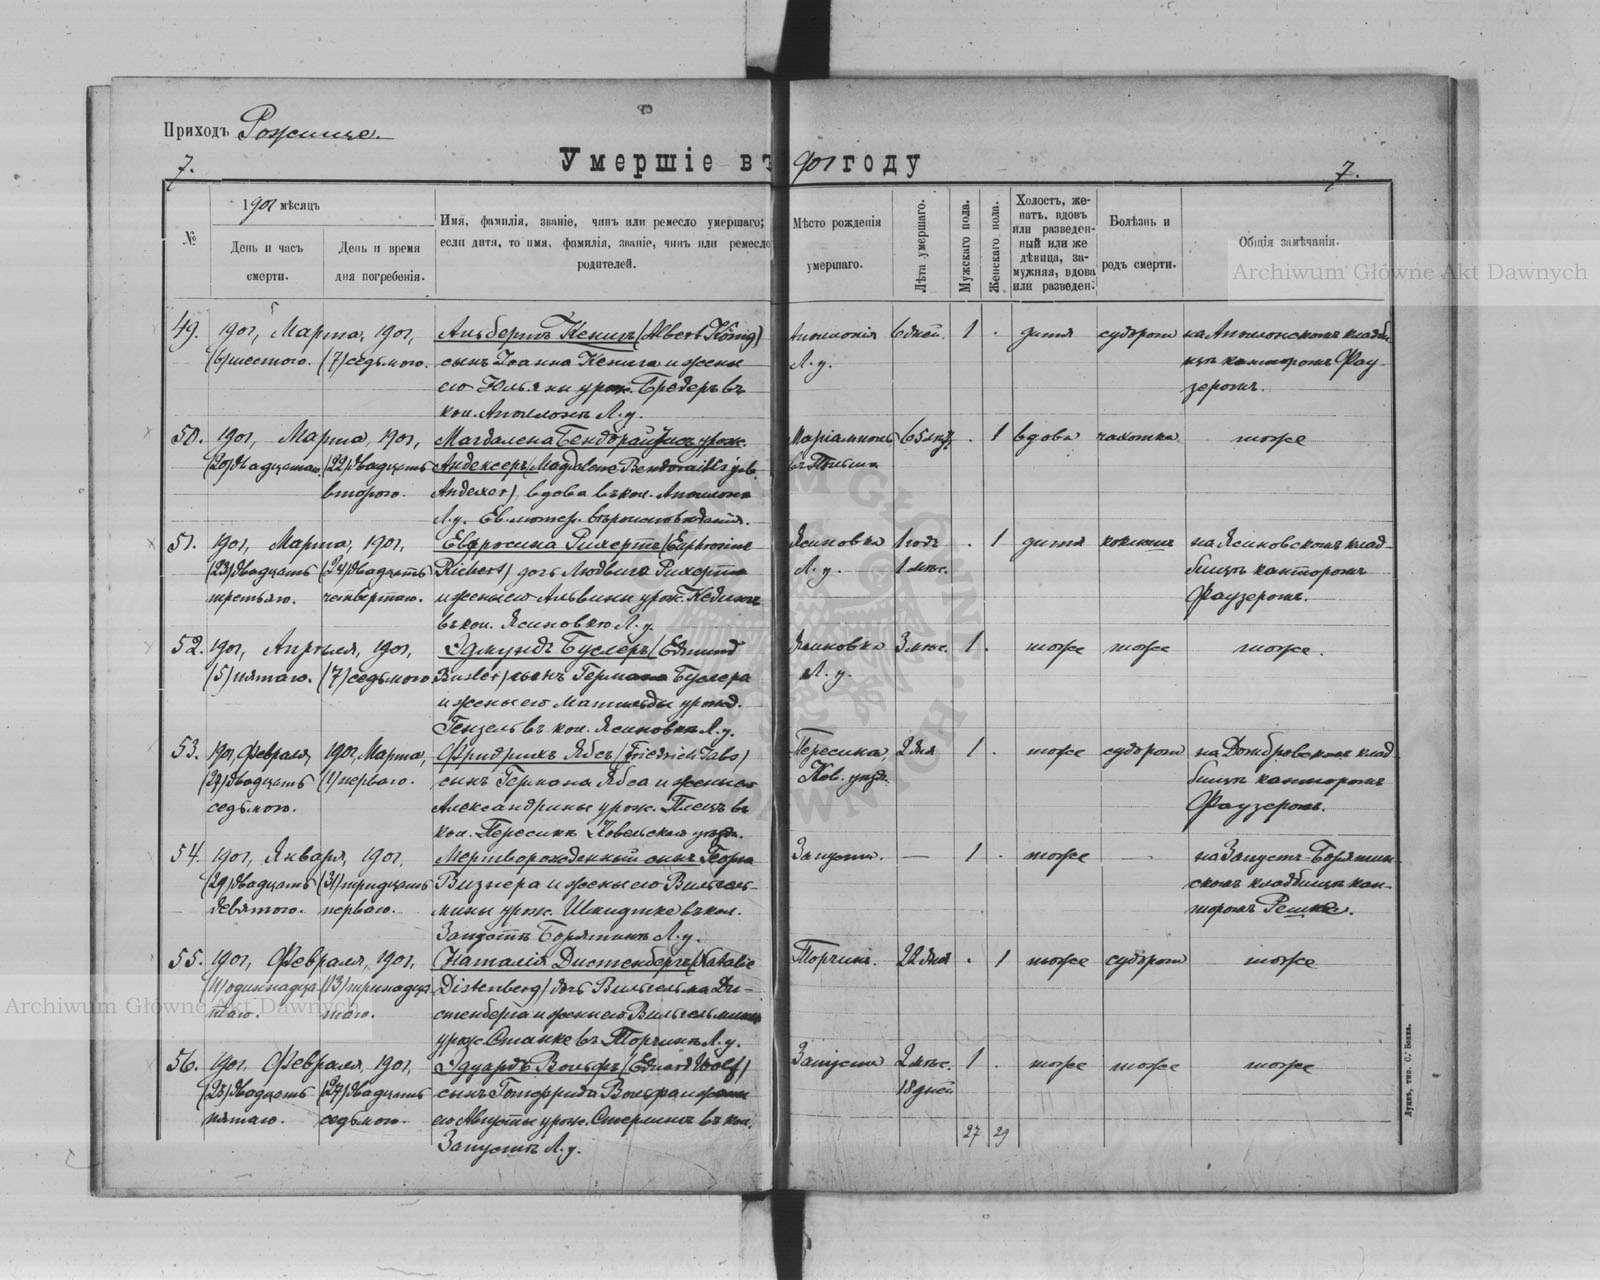 Приходъ Рожище.
Умершіе въ 1901 году
7.
7.
№
1901 мѣсяцъ
День и часъ смерти.
День и время дня погребенія.
Имя, фамилія, званіе, чинъ или ремесло умершаго;
если дитя, то имя, фамилія, званіе, чинъ или ремесло
родителей.
Мѣсто рожденія
умершаго.
Лѣта умершаго.
Мужскаго пола.
Женскаго пола.
Холостъ, же-
натъ, вдовъ
или разведен-
ный или же
дѣвица, за-
мужняя, вдова
или разведен.
Болѣзнь и
родъ смерти.
Общія замѣчанія.
49. 1901, Марта, 1901, Альбертъ Кенигъ (Albert König) Аполонія 6 дней. 1 . дитя судороги на Аполонскомъ кладби
(6) шестого. (7) седьмого. сынъ Іоанна Кенига и жены Л. у. щѣ канторомъ Фау-
его Юльяны урож. Бредеръ въ зеромъ.
кол. Аполонія Л. у.
50. 1901, Марта, 1901, Магдалена Бендорайтисъ урож. 65 лѣтъ . 1 вдова чахотка тоже
(20) двадцатаго (22) двадцать Андексеръ (Magdalene Bendoraitis geb.
второго. Andexer), вдова въ кол. Аполонія
Л. у. Ев. лютер. вѣроисповѣданія.
51. 1901, Марта, 1901, Евфросина Рихертъ (Euphrosine Ясиновка 1 годъ . 1 дитя коклюшъ на Ясиновскомъ клад-
(23) двадцать (24) двадцать Richert) дочь Людвига Рихерта Л. у. 1 мѣс. бищѣ канторомъ
третьяго. четвертаго. и жены его Альвины урож. Фаузеромъ.
въ кол. Ясиновкѣ Л. у.
52. 1901, Апрѣля, 1901, Эдмундъ Буслеръ (Edmund Ясиновка 3 мѣс. 1 . тоже тоже тоже.
(5) пятаго. (7) седьмого Busler) сынъ Германа Буслера Л. у.
и жены его Матильды урожд.
Гензель въ кол. Ясиновка Л. у.
53. 1901, Февраля, 1901, Марта, Фридрихъ Ябсъ (Friedrich Jabs) Пересика, 2 дня 1 . тоже судороги на Домбровскомъ клад-
(27) двадцать (1) перваго. сынъ Германа Ябса и жены его Ков. уѣзд. бищѣ канторомъ
седьмого. Александрины урож. въ Фаузеромъ.
кол. Пересикѣ Ковельскаго уѣзда.
54. 1901, Января, 1901, Мертворожденный сынъ Георга Запустъ. — 1 . тоже — на Запустъ-Борятин-
(29) двадцать (31) тридцать Визнера и жены его Вильгель- скомъ кладбищѣ кан-
девятого. перваго. мины урож. Шмидтке въ кол. торомъ Решке.
Запустъ Борятинъ Л. у.
55. 1901, Февраля, 1901, Наталія Дистенбергъ (Natalie Торчинъ. 22 дня . 1 тоже судороги тоже
(11) одиннадца- (13) тринадца- Distenberg) дочь Вильгельма Ди-
таго. таго. стенберга и жены его Вильгельмины
урож. Станке въ Торчинѣ Л. у.
56. 1901, Февраля, 1901, Эдуардъ Вольфъ (Eduard Wolf) Запустъ 2 мѣс. 1 . тоже тоже тоже
(25) двадцать (27) двадцать сынъ Готфрида Вольфа и жены 18 дней
пятаго. седьмого. его Августы урож. въ кол.
Запустъ Л. у.
27 29
Луцкъ, тип. С. Бокка.
Archiwum Główne Akt Dawnych
Archiwum Główne Akt Dawnych